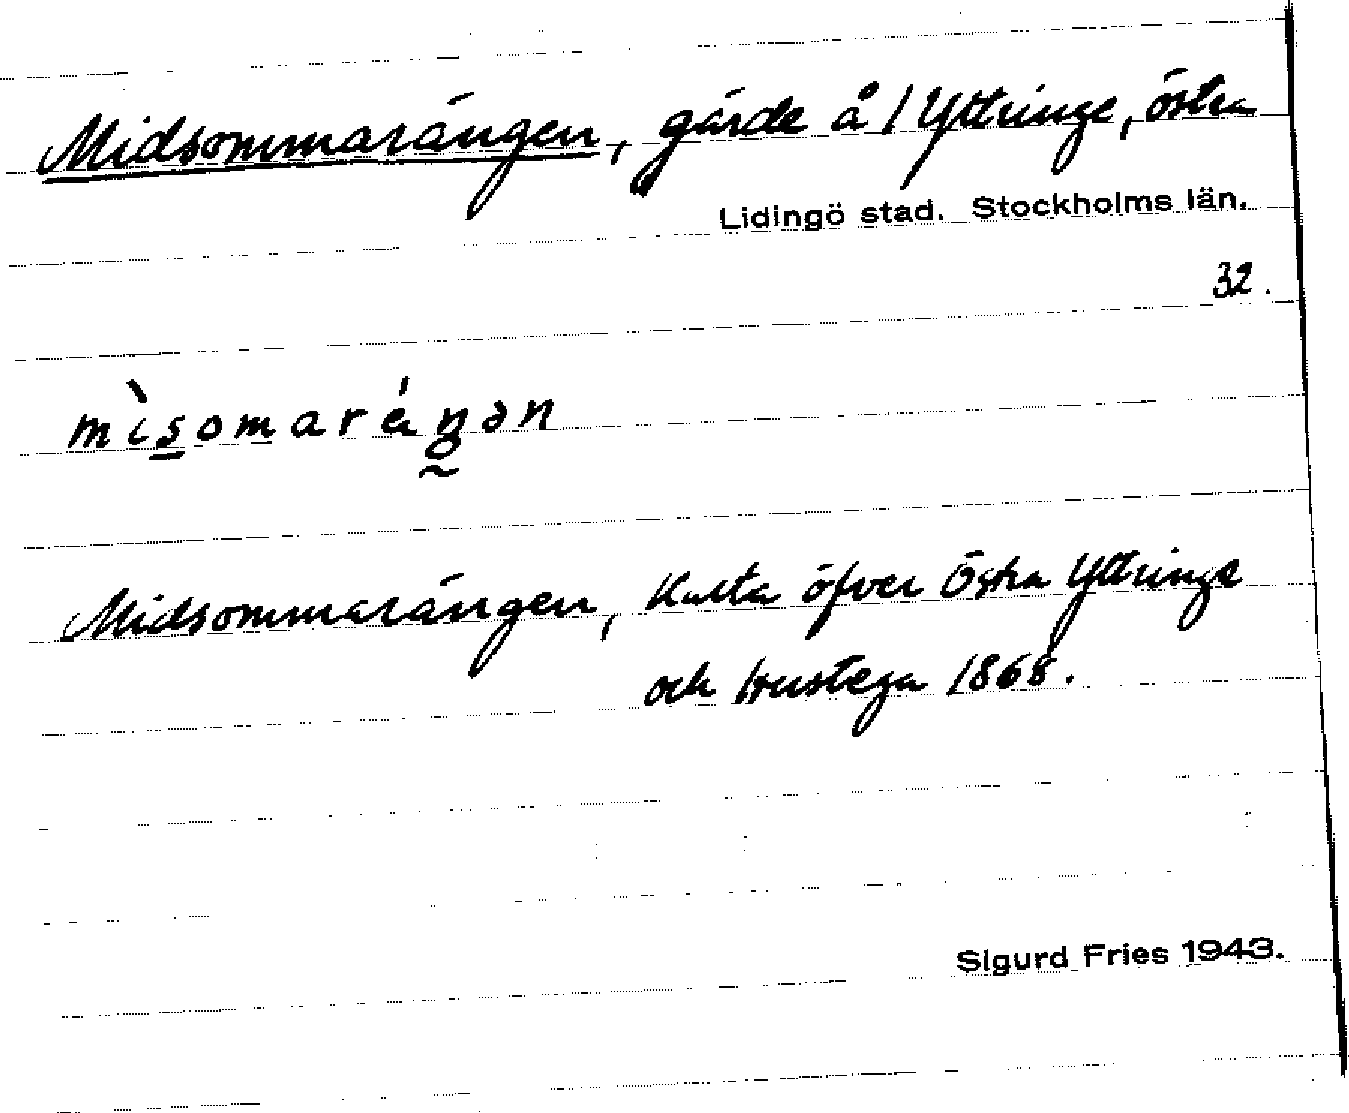 Midsommarängen, gärde å / Yttringe, östra
Lidingö stad. Stockholms län.
32.
mìsomaréŋən
Midsommarängen, Karta öfver Östra Yttringe
och Hustega 1868.
Sigurd Fries 1943.